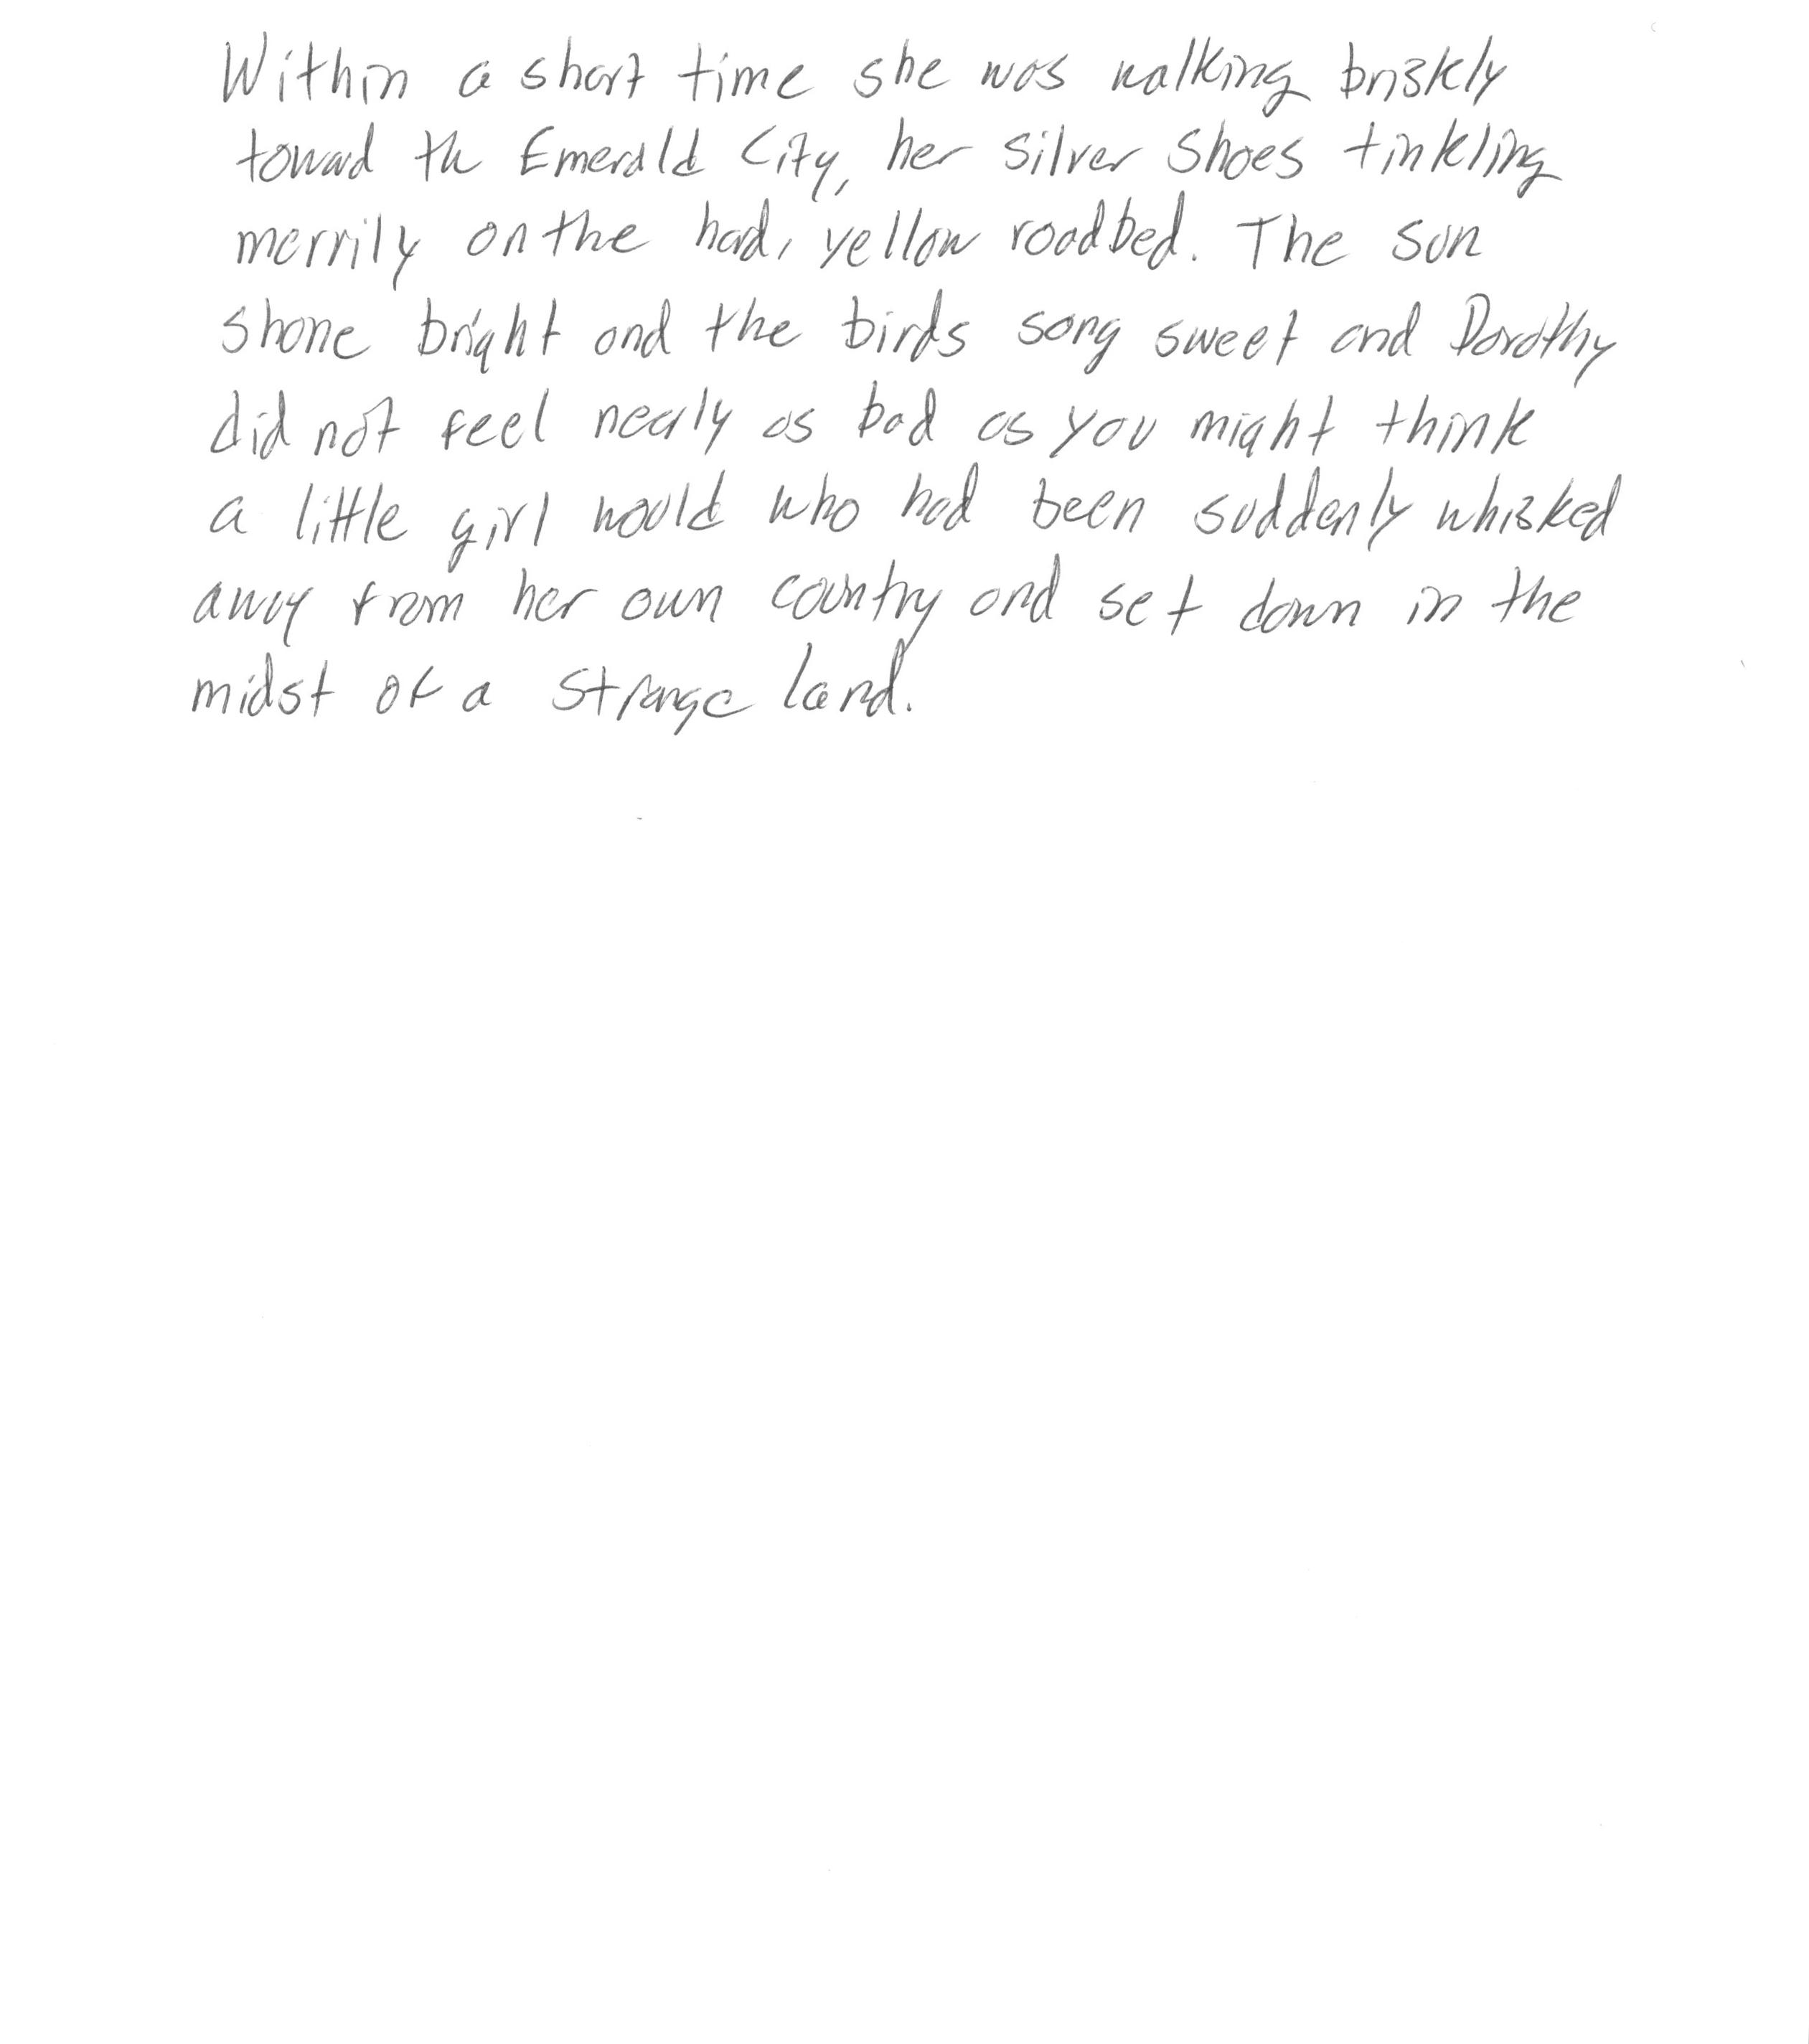 Within a short time she was walking briskly
toward the Emerald City, her silver shoes tinkling
merrily on the hard, yellow roadbed. The sun
shone bright and the birds song sweet and Dorothy
did not feel nearly as bad as you might think
a little girl would who had been suddenly whisked
away from her own country and set down in the
midst of a strange land.